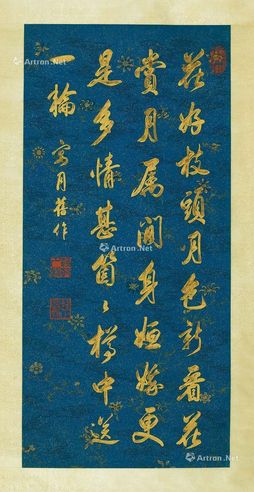 花好枝頭月色新看花
賞月屬閒身姮娥更
是多情甚箇〻樽中送
一輪 月舊作
Artron.Net
Artron.Net
Artron.Net
Artron.Net
Artron.Net